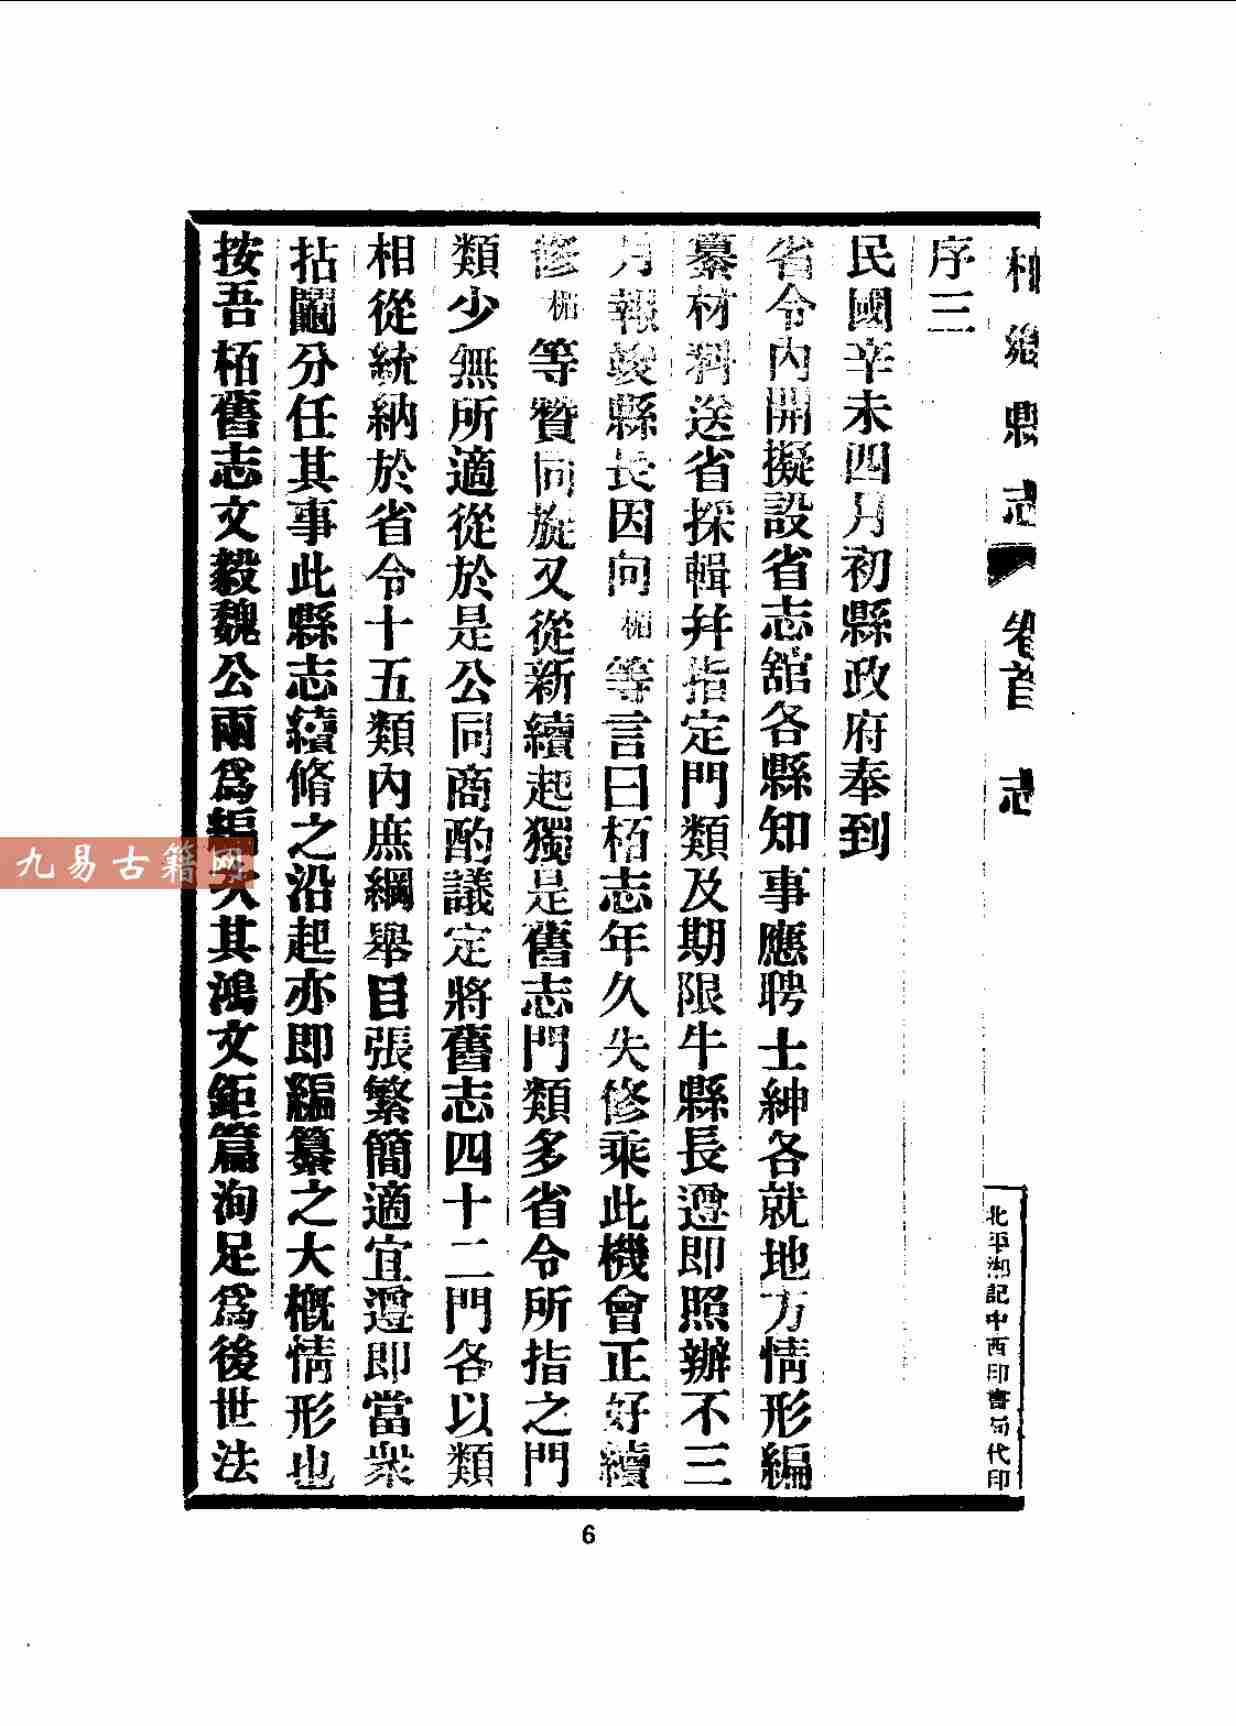 柏鄉縣志
卷首
志
北平湘記中西印書局代印
序三
民國辛未四月初縣政府奉到
省令內開擬設省志舘各縣知事應聘士紳各就地方情形編
纂材料送省採輯幷指定門類及期限牛縣長遵即照辦不三
月報竣縣長因向楣等言曰栢志年久失修乘此機會正好續
修楣等贊同旋又從新續起獨是舊志門類多省令所指之門
類少無所適從於是公同商酌議定將舊志四十二門各以類
相從統納於省令十五類內庶綱舉目張繁簡適宜遵即當衆
拈鬮分任其事此縣志續脩之沿起亦即編纂之大槪情形也
按吾栢舊志文毅魏公兩爲編次其鴻文鉅篇洵足爲後世法
6
九易古籍网